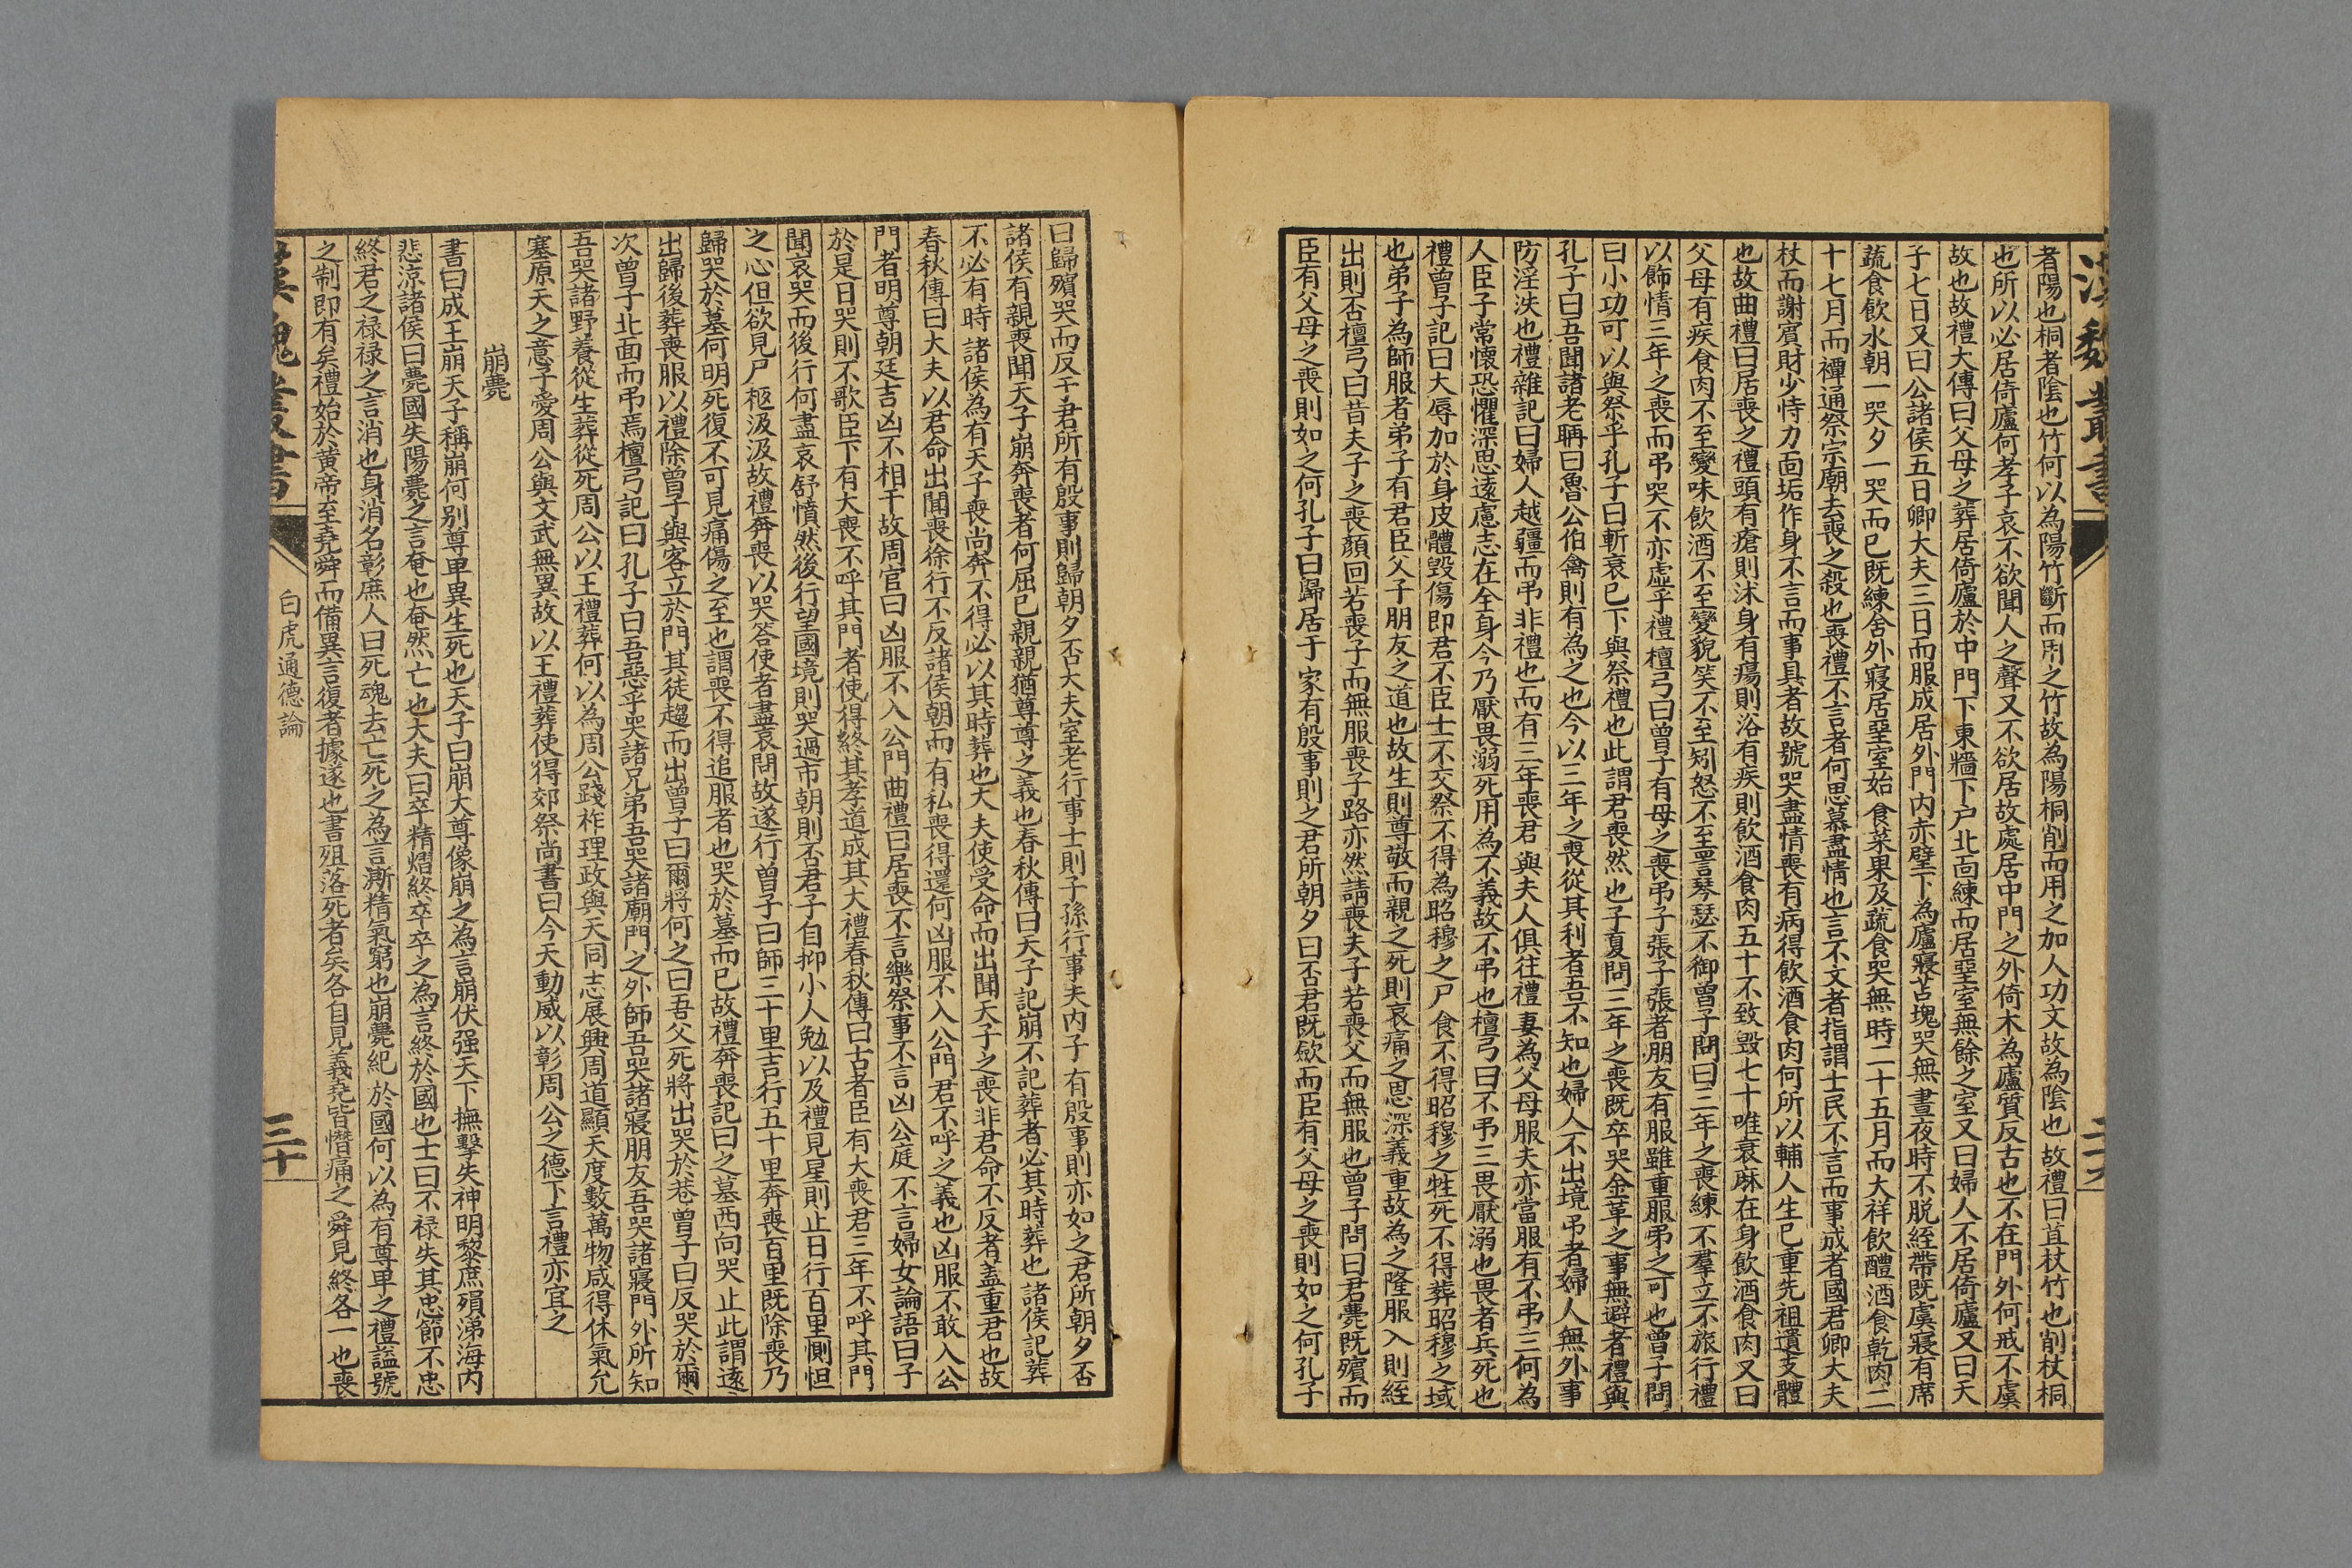 漢魏叢書
者陽也桐者陰也竹何以為陽竹斷而用之竹故為陽桐削而用之加人功文故為陰也故禮曰苴杖竹也削杖桐
也所以必居倚廬何孝子哀不欲聞人之聲又不欲居故處居中門之外倚木為廬質反古也不在門外何戒不虞
故也故禮大傳曰父母之葬居倚廬於中門下東牆下戶北面練而居堊室無餘之室又曰婦人不居倚廬又曰天
子七日又曰公諸侯五日卿大夫三日而服成居外門內赤壁下為廬寢苫塊哭無晝夜時不脫絰帶既虞寢有席
蔬食飲水朝一哭夕一哭而已既練舍外寢居堊室始食菜果及蔬食哭無時二十五月而大祥飲醴酒食乾肉二
十七月而禫通祭宗廟去喪之殺也喪禮不言者何思慕盡情也言不文者指謂士民不言而事成者國君卿大夫
杖而謝賓財少恃力面垢作身不言而事具者故號哭盡情喪有病得飲酒食肉何所以輔人生已重先祖遺支體
也故曲禮曰居喪之禮頭有瘡則沐身有瘍則浴有疾則飲酒食肉五十不致毀七十唯衰麻在身飲酒食肉又曰
父母有疾食肉不至變味飲酒不至變貌笑不至矧怒不至詈琴瑟不御曾子問曰三年之喪練不羣立不旅行禮
以飾情三年之喪而弔哭不亦虛乎禮檀弓曰曾子有母之喪弔子張子張者朋友有服雖重服弔之可也曾子問
曰小功可以與祭乎孔子曰斬衰已下與祭禮也此謂君喪然也子夏問三年之喪既卒哭金革之事無避者禮與
孔子曰吾聞諸老聃曰魯公伯禽則有為之也今以三年之喪從其利者吾不知也婦人不出境弔者婦人無外事
防淫泆也禮雜記曰婦人越疆而弔非禮也而有三年喪君與夫人俱往禮妻為父母服夫亦當服有不弔三何為
人臣子常懷恐懼深思遠慮志在全身今乃厭畏溺死用為不義故不弔也檀弓曰不弔三畏厭溺也畏者兵死也
禮曾子記曰大辱加於身皮體毀傷即君不臣士不交祭不得為昭穆之尸食不得昭穆之牲死不得葬昭穆之域
也弟子為師服者弟子有君臣父子朋友之道也故生則尊敬而親之死則哀痛之恩深義重故為之隆服入則絰
出則否檀弓曰昔夫子之喪顏回若喪子而無服喪子路亦然請喪夫子若喪父而無服也曾子問曰君薨既殯而
臣有父母之喪則如之何孔子曰歸居于家有殷事則之君所朝夕曰否君既斂而臣有父母之喪則如之何孔子
曰歸殯哭而反于君所有殷事則歸朝夕否大夫室老行事士則子孫行事夫內子有殷事則亦如之君所朝夕否
諸侯有親喪聞天子崩奔喪者何屈已親親猶尊尊之義也春秋傳曰天子記崩不記葬者必其時葬也諸侯記葬
不必有時諸侯為有天子喪尚奔不得必以其時葬也大夫使受命而出聞天子之喪非君命不反者蓋重君也故
春秋傳曰大夫以君命出聞喪徐行不反諸侯朝而有私喪得還何凶服不入公門君不呼之義也凶服不敢入公
門者明尊朝廷吉凶不相干故周官曰凶服不入公門曲禮曰居喪不言樂祭事不言凶公庭不言婦女論語曰子
於是日哭則不歌臣下有大喪不呼其門者使得終其孝道成其大禮春秋傳曰古者臣有大喪君三年不呼其門
聞哀哭而後行何盡哀舒憤然後行望國境則哭過市朝則否君子自抑小人勉以及禮見星則止日行百里惻怛
之心但欲見尸柩汲汲故禮奔喪以哭答使者盡哀問故遂行曾子曰師三十里吉行五十里奔喪百里既除喪乃
歸哭於墓何明死復不可見痛傷之至也謂喪不得追服者也哭於墓而已故禮奔喪記曰之墓西向哭止此謂遠
出歸後葬喪服以禮除曾子與客立於門其徒趨而出曾子曰爾將何之曰吾父死將出哭於巷曾子曰反哭於爾
次曾子北面而弔焉檀弓記曰孔子曰吾惡乎哭諸兄弟吾哭諸廟門之外師吾哭諸寢朋友吾哭諸寢門外所知
吾哭諸野養從生葬從死周公以王禮葬何以為周公踐祚理政與天同志展興周道顯天度數萬物咸得休氣允
塞原天之意子愛周公與文武無異故以王禮葬使得郊祭尚書曰今天動威以彰周公之德下言禮亦宜之
崩薨
書曰成王崩天子稱崩何别尊卑異生死也天子曰崩大尊像崩之為言崩伏强天下撫擊失神明黎庶殞涕海內
悲涼諸侯曰薨國失陽薨之言奄也奄然亡也大夫曰卒精熠終卒卒之為言終於國也士曰不祿失其忠節不忠
終君之祿祿之言消也身消名彰庶人曰死魂去亡死之為言澌精氣窮也崩薨紀於國何以為有尊卑之禮諡號
之制即有矣禮始於黃帝至堯舜而備異言復者據遂也書殂落死者矣各自見義堯皆憯痛之舜見終各一也喪
漢魏叢書
白虎通德論
三十